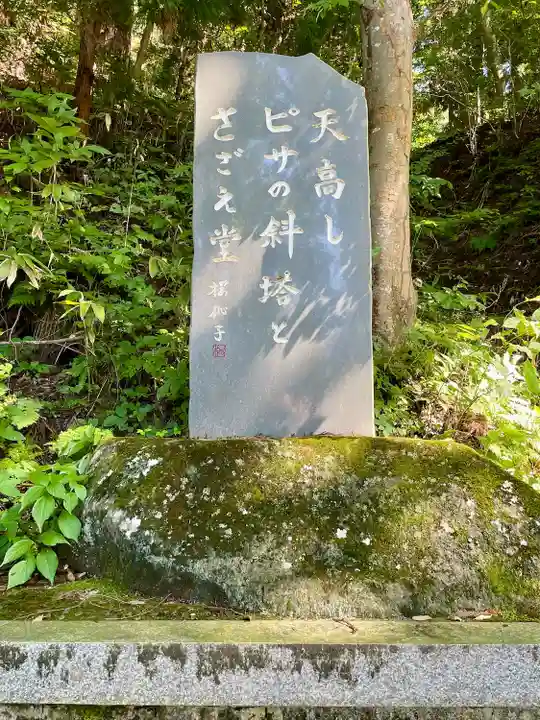 天高し
ピサの斜塔と
さざえ堂